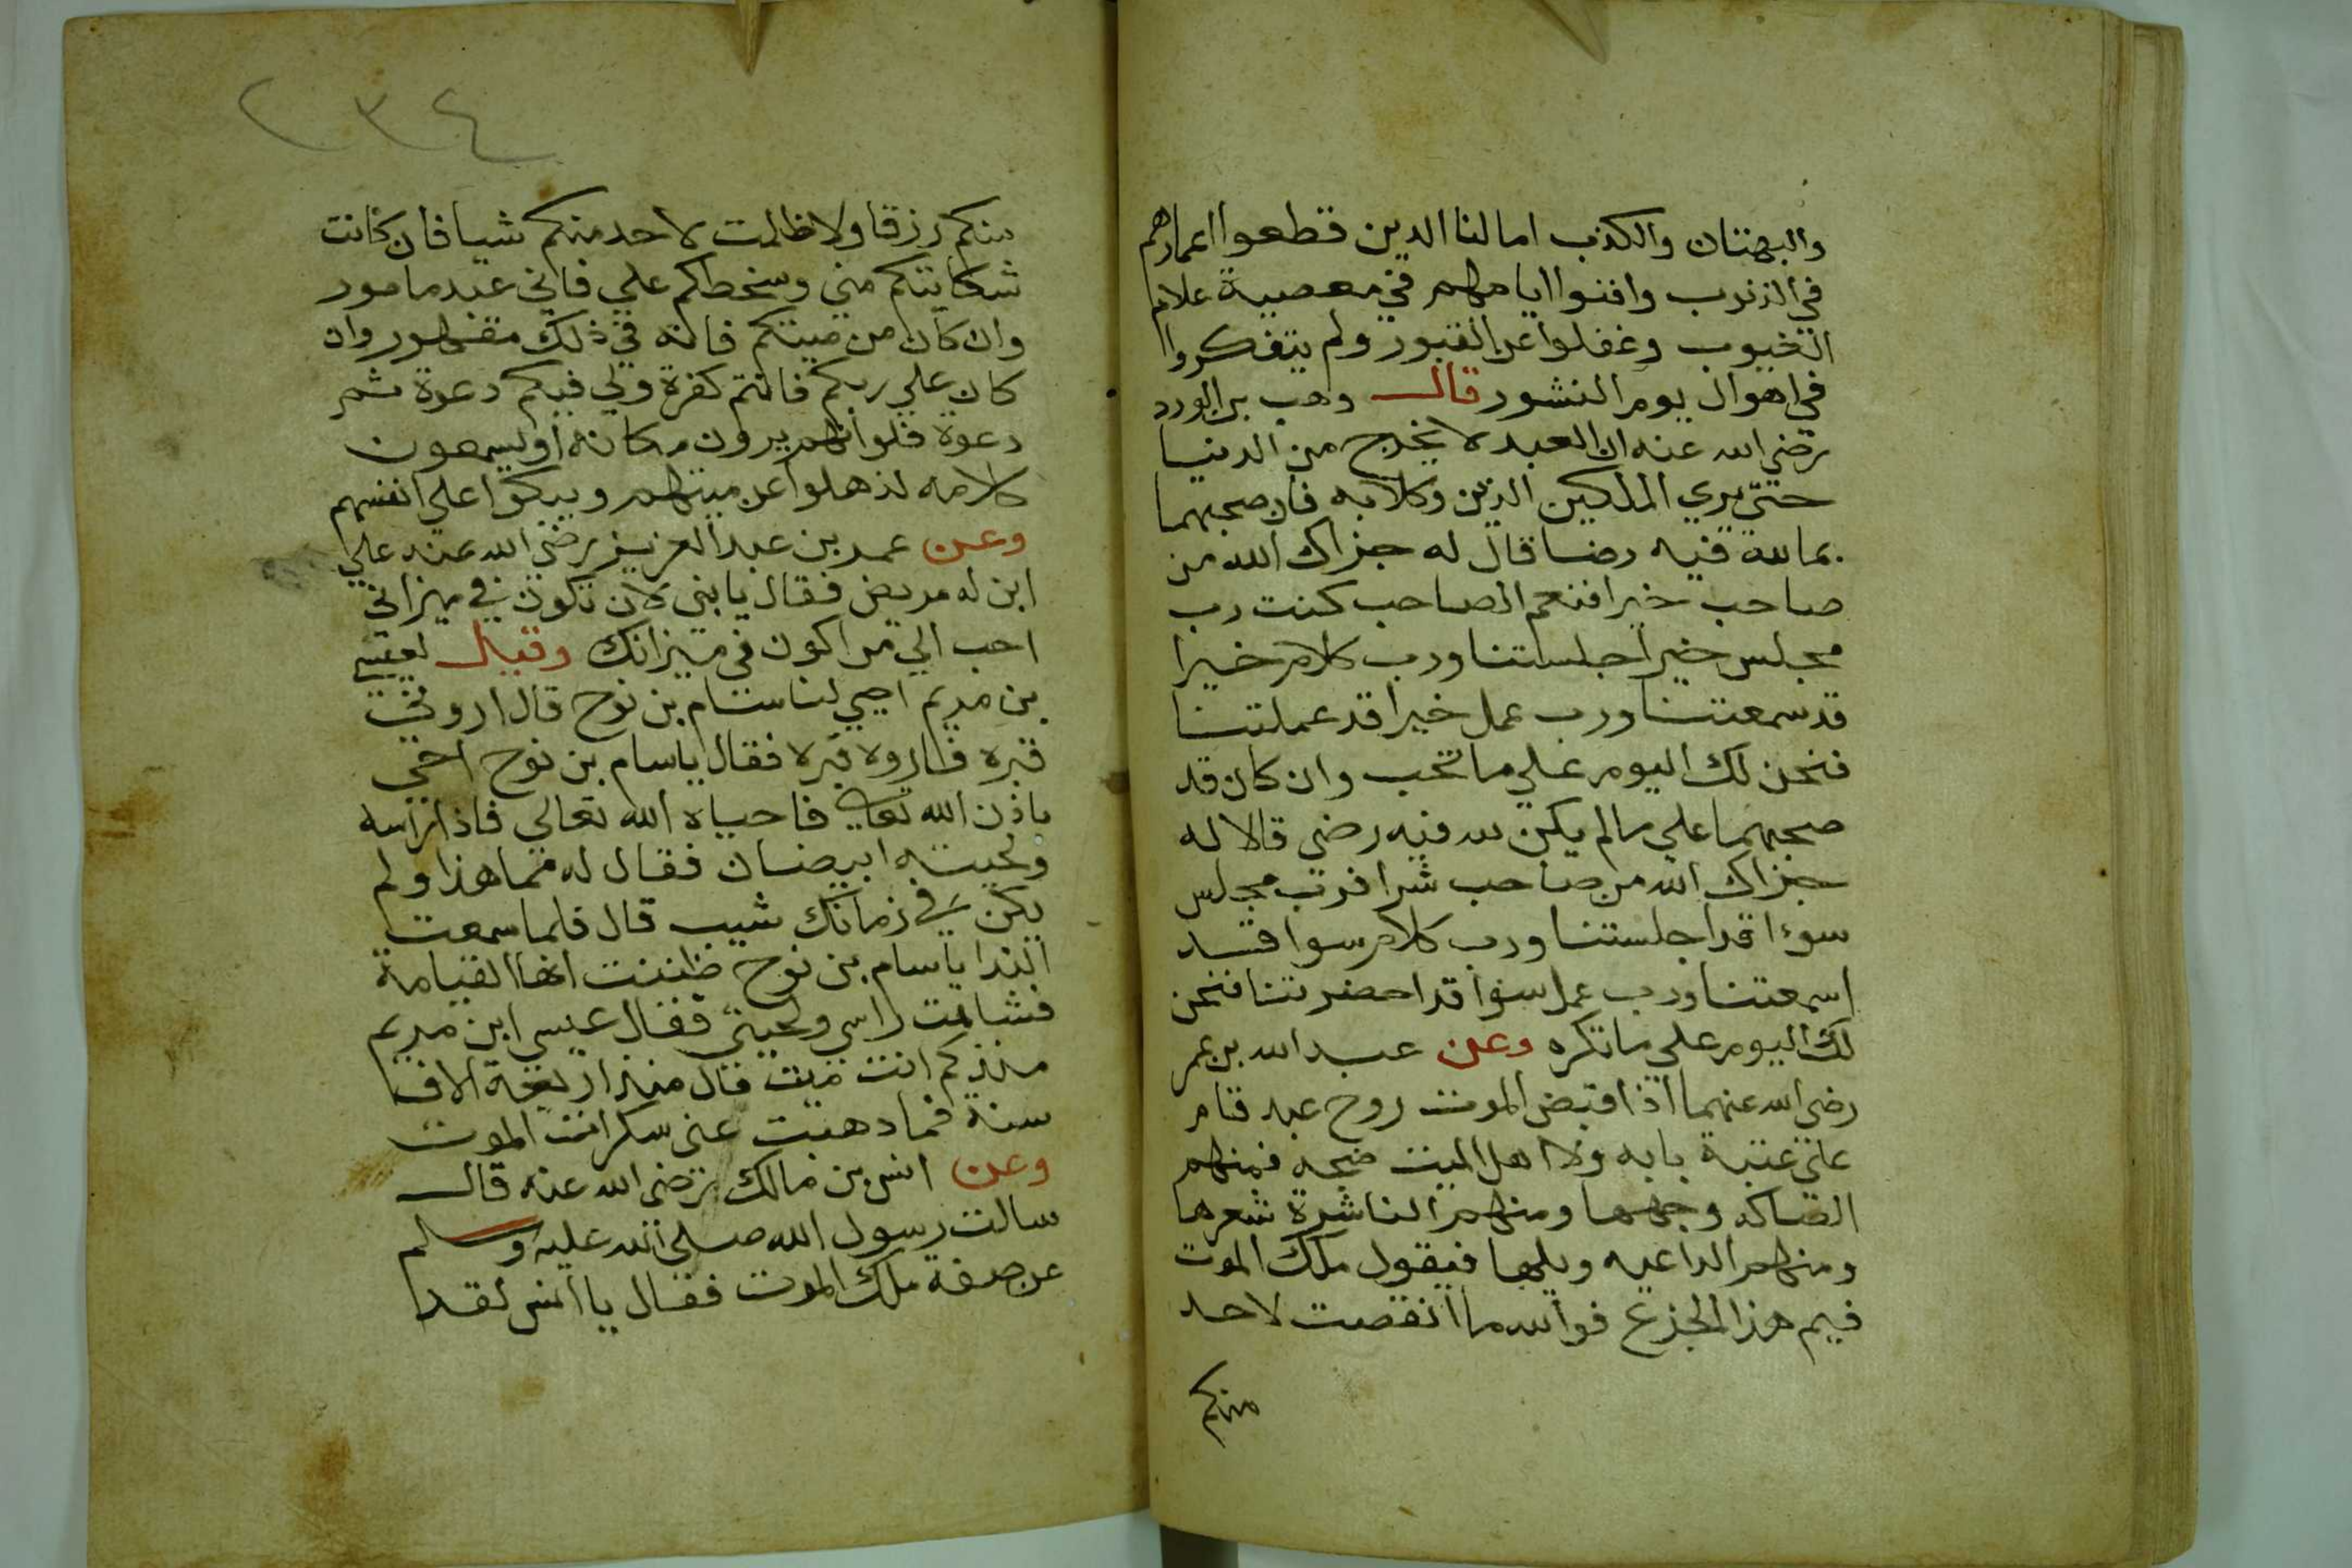 والبهتان والكذب امالنا الدين قطعوا اعمارهم
في الذنوب وافنوا ايامهم في معصية علام
الغيوب وغفلوا عن القبور ولم يتفكروا
في اهوال يوم النشور قال وهب بن الورد
رضي الله عنه ان العبد لا يخرج من الدنيا
حتي يري الملكين الذين وكلا به فان صحبهما
بما لله فيه رضا قال له جزاك الله من
صاحب خيرا فنعم الصاحب كنت رب
مجلس خيرا جلستنا ورب كلام خيرا
قد سمعتنا ورب عمل خيرا قد عملتنا
فنحن لك اليوم علي ما تحب وان كان قد
صحبهما علي مالم يكن لله فيه رضي قالا له
جزاك الله من صاحب شرا فرب مجلس
سوءا قد اجلستنا ورب كلام سوا قد
اسمعتنا ورب عمل سوا قد احضرتنا فنحن
لك اليوم علي ما تكره وعن عبد الله بن عمر
رضي الله عنهما اذا قبض الموت روح عبد قام
علي عتبة بابه ولا اهل الميت ضجه فمنهم
الصاكه وجهها ومنهم الناشرة شعرها
ومنهم الداعيه ويلها فيقول ملك الموت
فيم هذا الجزع فوالله ما انقصت لاحد
منكم
٢٣٤
منكم رزقا ولا ظلمت لاحد منكم شيا فان كانت
شكايتكم مني وسخطكم علي فاني عبد مامور
وان كان من ميتكم فانه في ذلك مقهور وان
كان علي ربكم فانتم كفرة ولي فيكم دعوة ثم
دعوة فلوا انهم يرون مكانه او يسمعون
كلامه لذهلوا عن ميتهم وبكوا علي انفسهم
وعن عمر بن عبد العزيز رضي الله عنه علي
ابن له مريض فقال يا بني لان تكون في ميزاني
احب الي من اكون في ميزانك وقيل لعيسي
بن مريم احيي لنا سام بن نوح قال اروني
قبره فاروه قبره فقال يا سام بن نوح احي
باذن الله تعالي فاحياه الله تعالي فاذا راسه
ولحيته ابيضان فقال له مما هذا ولم
يكن في زمانك شيب قال فلما سمعت
الندا يا سام بن نوح ظننت انها القيامة
فشابت راسي ولحيتي فقال عيسي ابن مريم
منذ كم انت ميت قال منذ اربعة الاف
سنة فما دهبت عني سكرات الموت
وعن انس بن مالك رضي الله عنه قال
سالت رسول الله صلي الله عليه وسلم
عن صفة ملك الموت فقال يا انس لقد